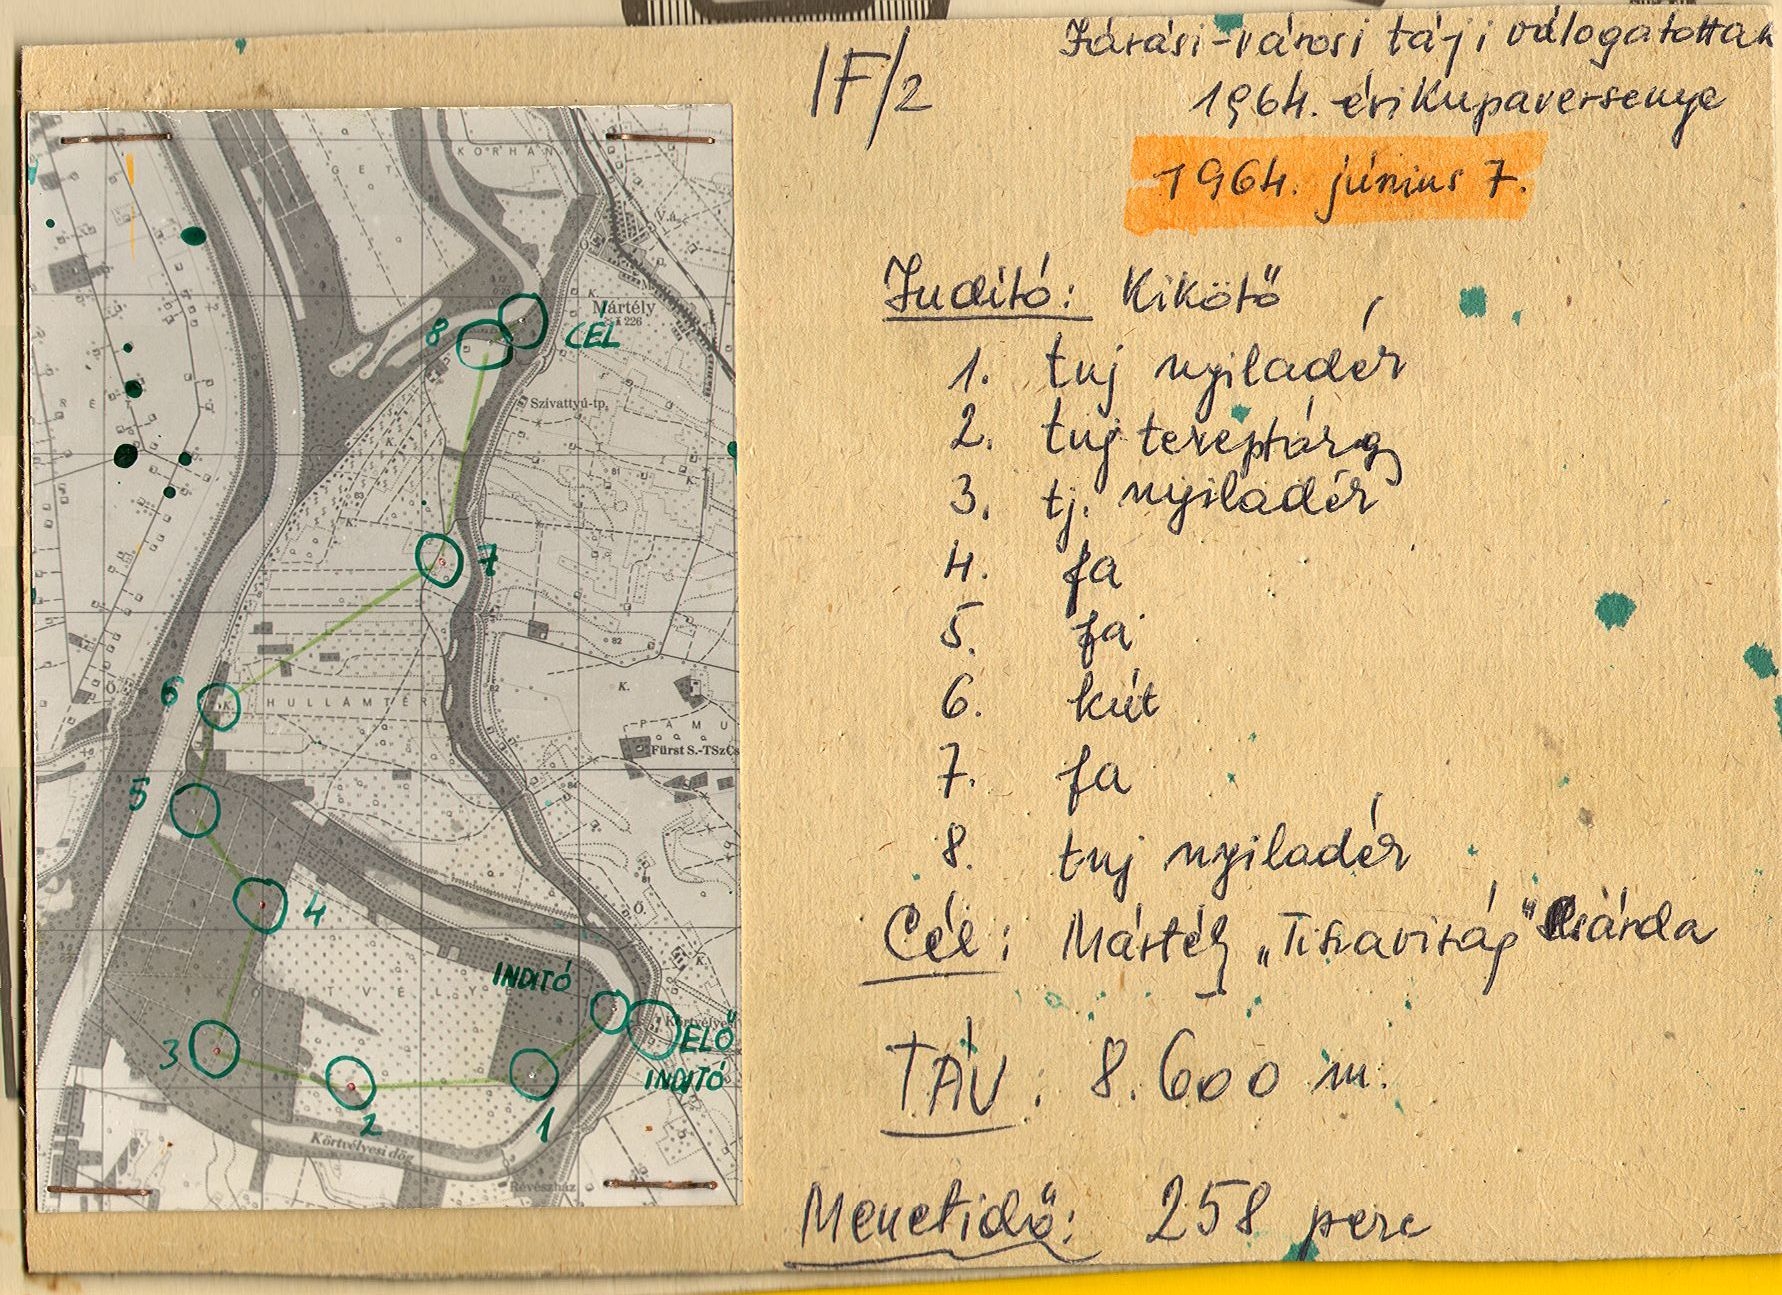 IF/2
Járási-városi táji válogatottak
1964. évi Kupaversenye
1964. június 7.
Inditó: Kikötő
1. tuj nyiladér
2. tuj tereptárgy
3. tj. nyiladér
4. fa
5. fa
6. kút
7. fa
8. tuj nyiladér
Cél: Mártély „Tiszavirág" Csárda
TÁV: 8.600 m.
Menetidő: 258 perc
KORHÁNY
GET
V.á.
Ő.
K.
Mártély
226
8
CÉL
Szivattyú-tp.
K.
81
63
K.
7
82
Ő.
6
K.
HULLÁMTÉR
82
K.
PAMU
Fürst S.-TSzCs
5
84
81
4
Ő.
K.
INDITÓ
KÖRTVÉLY
Körtvélyes
ELŐ
INDITÓ
3
2
1
Körtvélyesi dög
Révészház